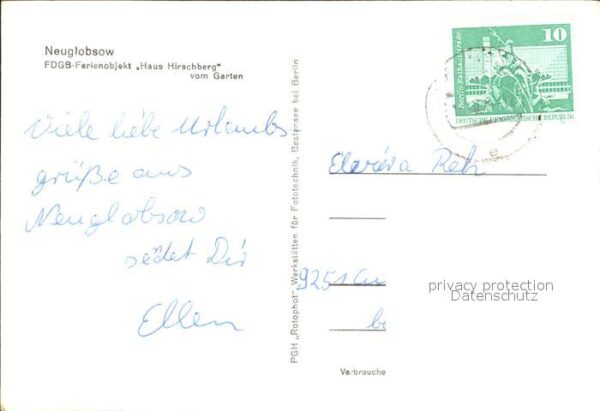 Neuglobsow
FDGB-Ferienobjekt „Haus Hirschberg"
vom Garten
Viele liebe Urlaubs
grüße aus
Neuglobsow
sendet Dir
Ellen
PGH „Rotophot" Werkstätten für Fototechnik, Bestensee bei Berlin
10
Berlin, Rathausstraße
DEUTSCHE DEMOKRATISCHE REPUBLIK
Reh
9251
privacy protection
Datenschutz
Verbrauche